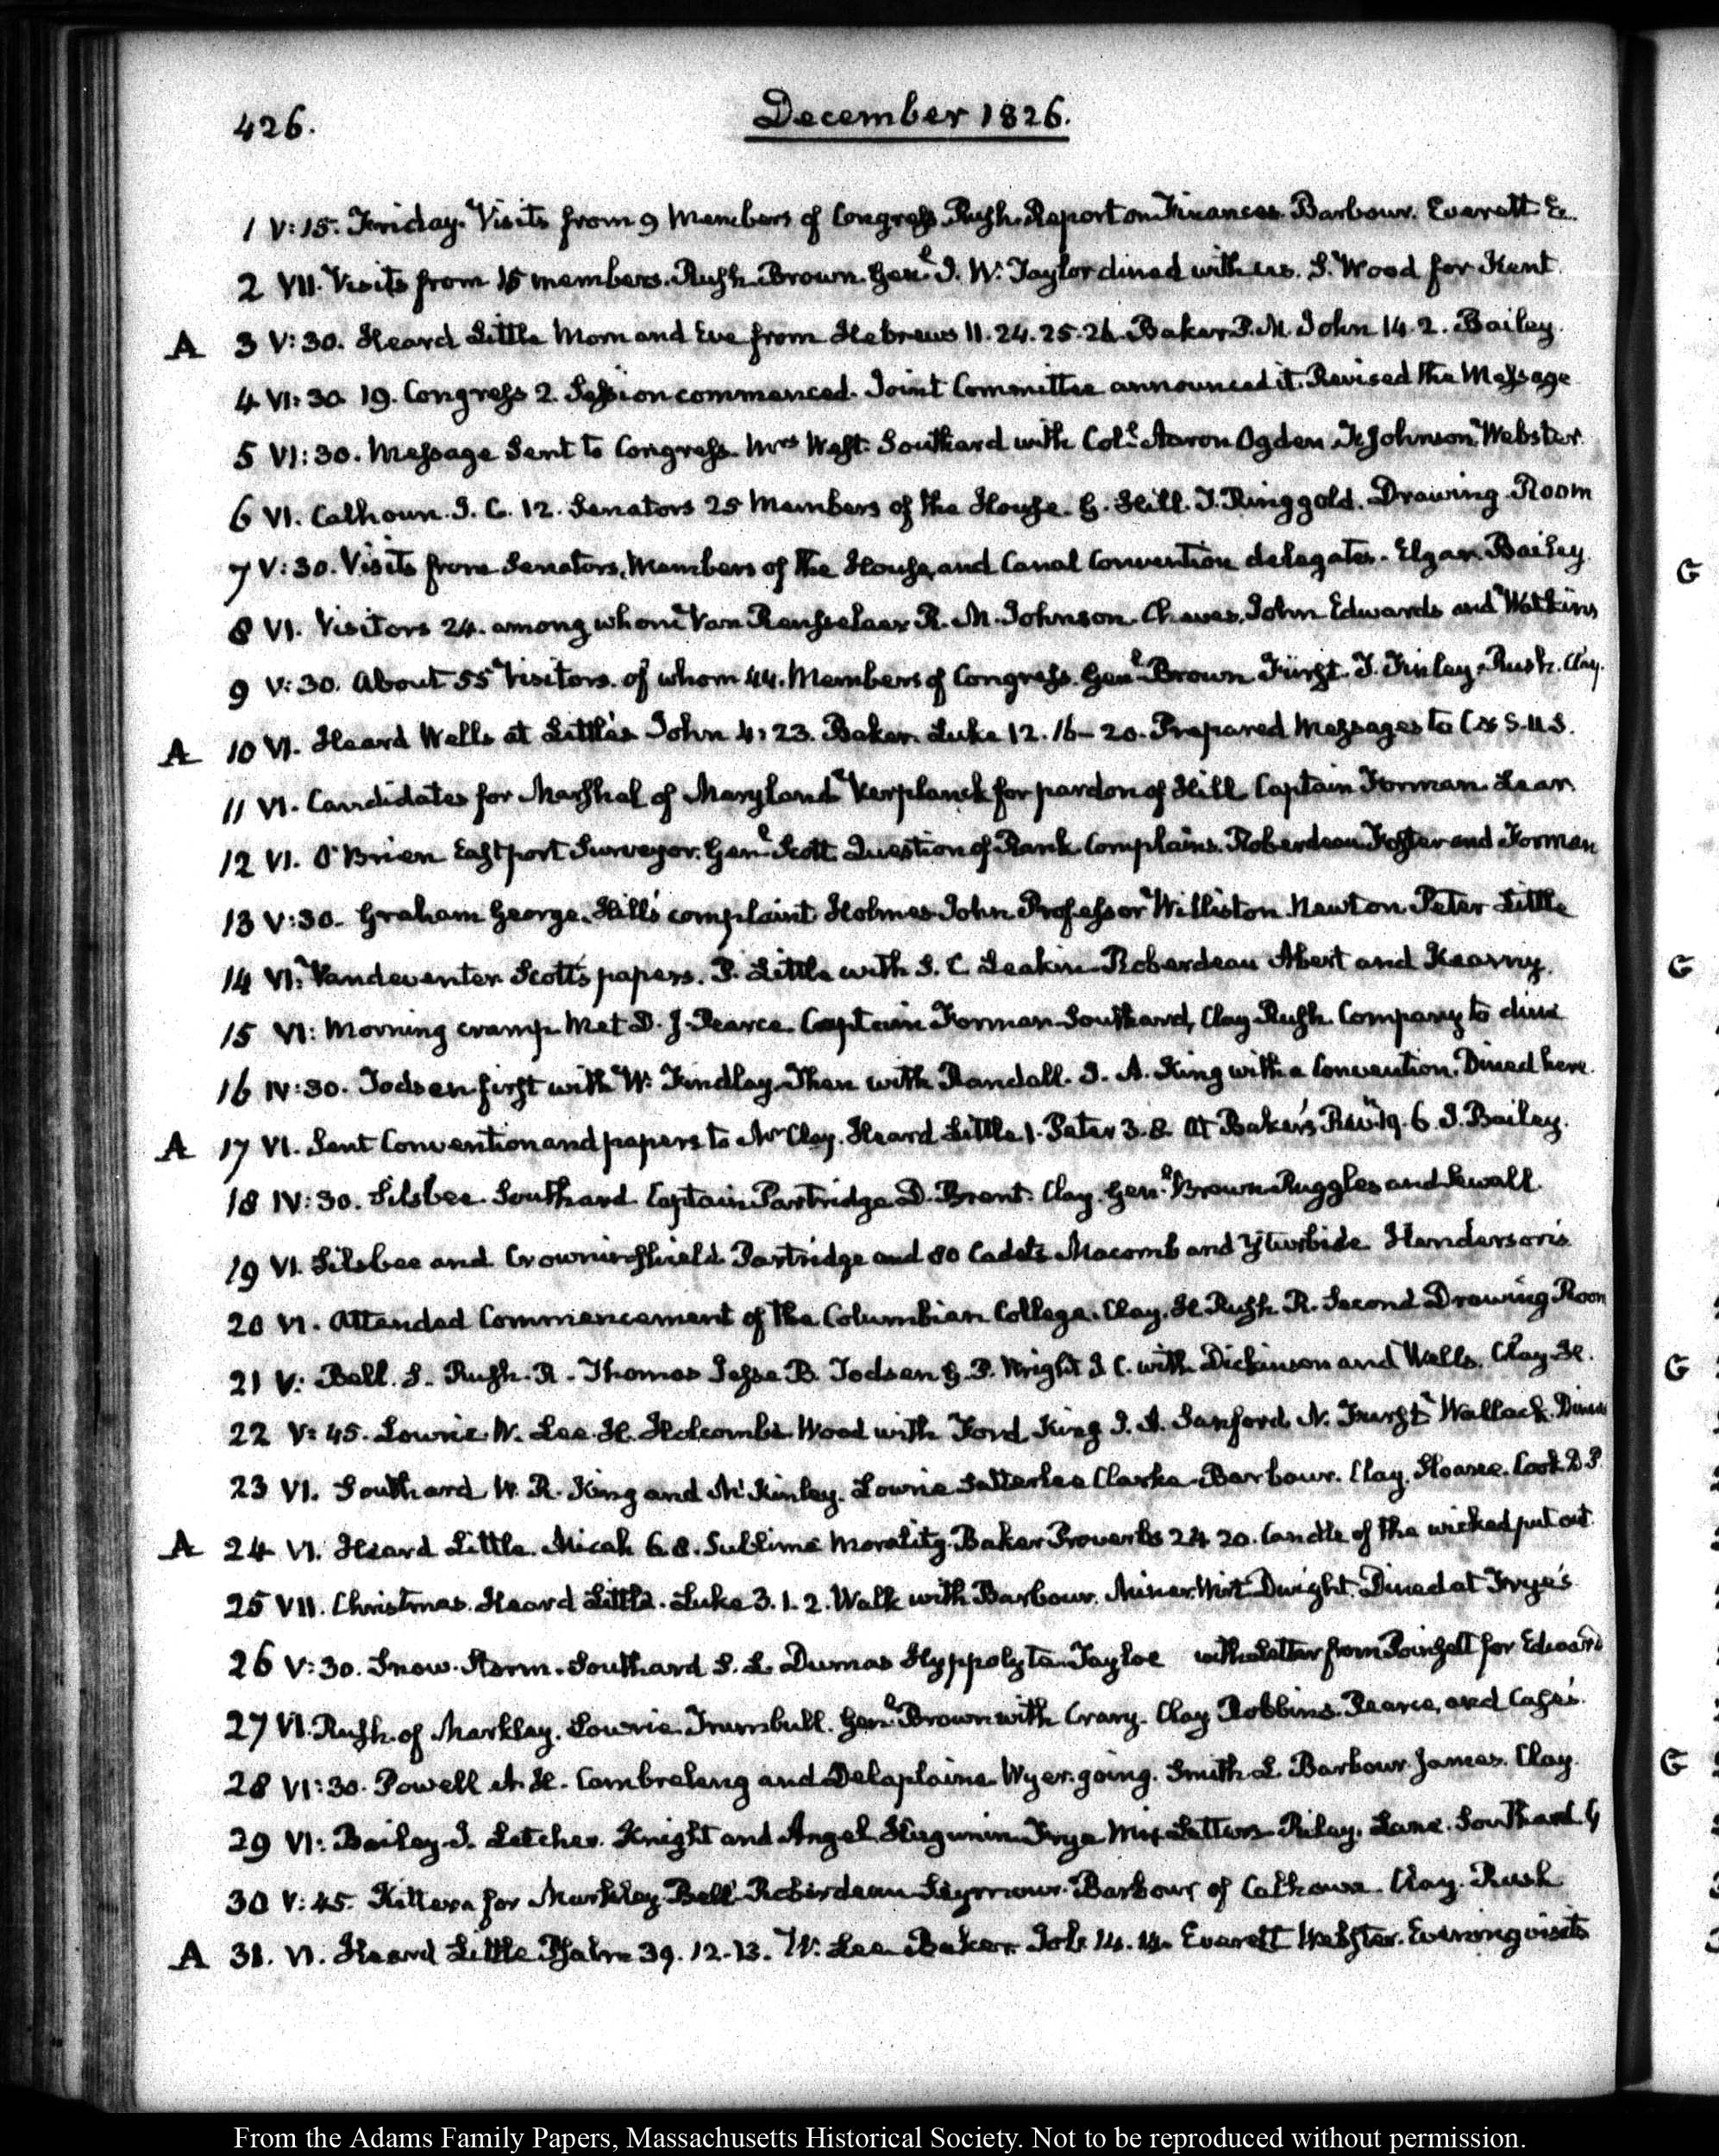 426.
December 1826.
1 V:15. Friday. Visits from 9 Members of Congress Rush. Report on Finances. Barbour. Everett E.
2 VII. Visits from 15 members. Rush. Brown. Genl. J. W. Taylor dined with us. S. Wood for Kent.
A 3 V:30. Heard Little Morn and Eve from Hebrews 11. 24. 25. 26. Baker P.M. John 14. 2. Bailey.
4 VI:30 19. Congress 2. Session commenced. Joint Committee announced it. Revised the Message
5 VI:30. Message Sent to Congress. Mrs West. Southard with Coll. Aaron Ogden Johnson Webster.
6 VI. Calhoun. J. C. 12. Senators 25 Members of the House. G. Hill. T. Ringgold. Drawing Room
7 V:30. Visits from Senators, Members of the House, and Canal Convention delegates. Elgar. Bailey.
8 VI. Visitors 24. among whom Van Rensselaer R. M. Johnson. Cheves. John Edwards and Watkins
9 V:30. About 55 Visitors. of whom 44. Members of Congress. Genl. Brown Fürst. J. Finley. Rush. Clay.
A 10 VI. Heard Wells at Little's John 4:23. Baker. Luke 12. 16-20. Prepared Messages to C. & S. U.S.
11 VI. Candidates for Marshal of Maryland Verplanck for pardon of Hill Captain Forman. Lear
12 VI. O'Brien Eastport Surveyor. Genl. Scott. Question of Rank Complains. Roberdeau Foster and Forman
13 V:30. Graham George. Hill's complaint Holmes John Professor Williston Newton Peter Little
14 VI. Vandeventer Scott's papers. P. Little with S. C. Leakin Roberdeau Abert and Kearny.
15 VI: Morning cramp Met D. J. Pearce. Captain Forman Southard, Clay Rush. Company to dine
16 IV:30. Todsen first with W. Findlay. Then with Randall. J. A. King with a Convention. Dined here.
A 17 VI. Sent Convention and papers to Mr Clay. Heard Little 1. Peter 3. 8. At Baker's Revn. 19. 6 J. Bailey.
18 IV:30. Silsbee. Southard Captain Partridge D. Brent. Clay. Genl. Brown Ruggles and Sewall.
19 VI. Silsbee and Crowninshield Partridge and 80 Cadets Macomb and Yturbide Henderson's
20 VI. Attended Commencement of the Columbian College. Clay. H. Rush. R. Second Drawing Room
21 V: Bell. S. Rush. R. Thomas Jesse B. Todsen G. P. Wright J. C. with Dickinson and Wells. Clay H.
22 V:45. Lowrie W. Lee H. Holcombe Wood with Ford King J. A. Sanford. N. Furst Wallack.
23 VI. Southard W. R. King and McKinley. Lowrie Satterlee Clarke. Barbour. Clay. Sloane. Cook D P.
A 24 VI. Heard Little. Micah 6. 8. Sublime Morality. Baker Proverbs 24 20. Candle of the wicked put out.
25 VII. Christmas. Heard Little. Luke 3. 1. 2. Walk with Barbour. Miner. Wirt Dwight. Dined at Frye's
26 V:30. Snow. Storm. Southard S. L. Dumas Hyppolyte Tayloe with Letter from Poinsett for Edward
27 VI. Rush. of Markley. Lowrie. Trumbull. Genl. Brown with Crary. Clay Robbins. Pearce, and Case's.
28 VI:30. Powell A. H. Cambreleng and Delaplaine. Wyer. going. Smith. L. Barbour. James. Clay.
29 VI: Bailey J. Letcher. Knight and Angel. Hugunin. Frye Mix Letters Riley. Lane. Southard.
30 V:45. Kittera for Markley Bell Roberdeau Seymour. Barbour of Calhoun. Clay. Rush
A 31. VI. Heard Little Psalm 39. 12-13. W. Lee. Baker. Job. 14. 14. Everett Webster. Evening visits
G
G
G
G
From the Adams Family Papers, Massachusetts Historical Society. Not to be reproduced without permission.